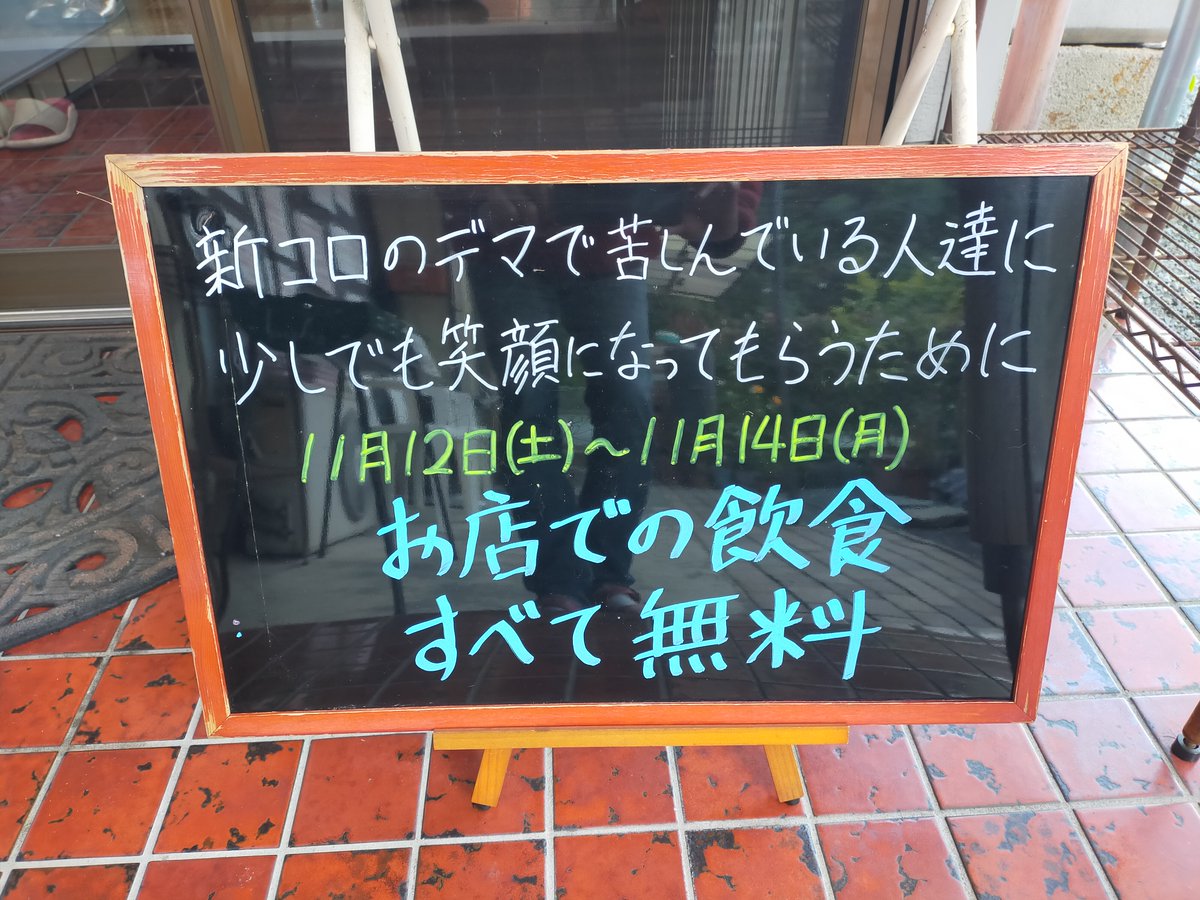 新コロのデマで苦しんでいる人達に
少しでも笑顔になってもらうために
11月12日(土)〜11月14日(月)
お店での飲食
すべて無料